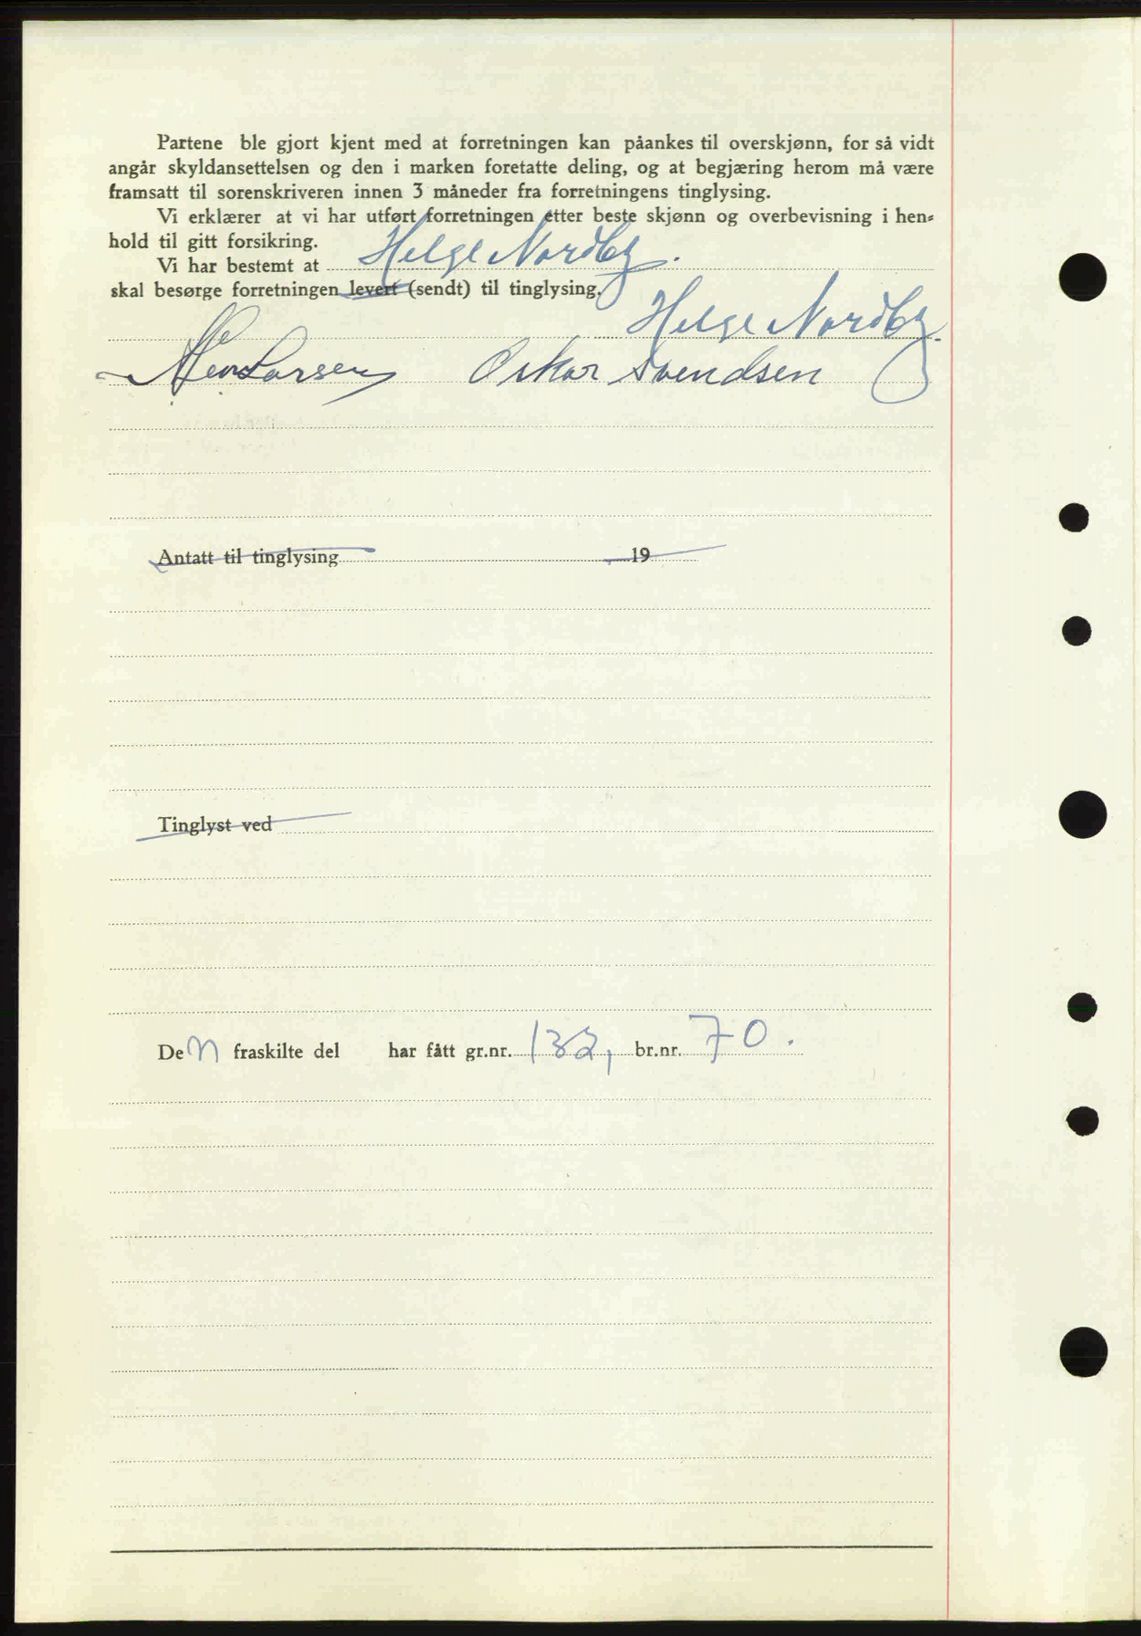 Partene ble gjort kjent med at forretningen kan påankes til overskjønn, for så vidt
angår skyldansettelsen og den i marken foretatte deling, og at begjæring herom må være
framsatt til sorenskriveren innen 3 måneder fra forretningens tinglysing.
Vi erklærer at vi har utført forretningen etter beste skjønn og overbevisning i hen-
hold til gitt forsikring.
Vi har bestemt at Helge Nordby.
skal besørge forretningen levert (sendt) til tinglysing.
Helge Nordby.
Larsen Oskar Svendsen
Antatt til tinglysing 19
Tinglyst ved
Den fraskilte del har fått gr.nr. 132, br.nr. 70.